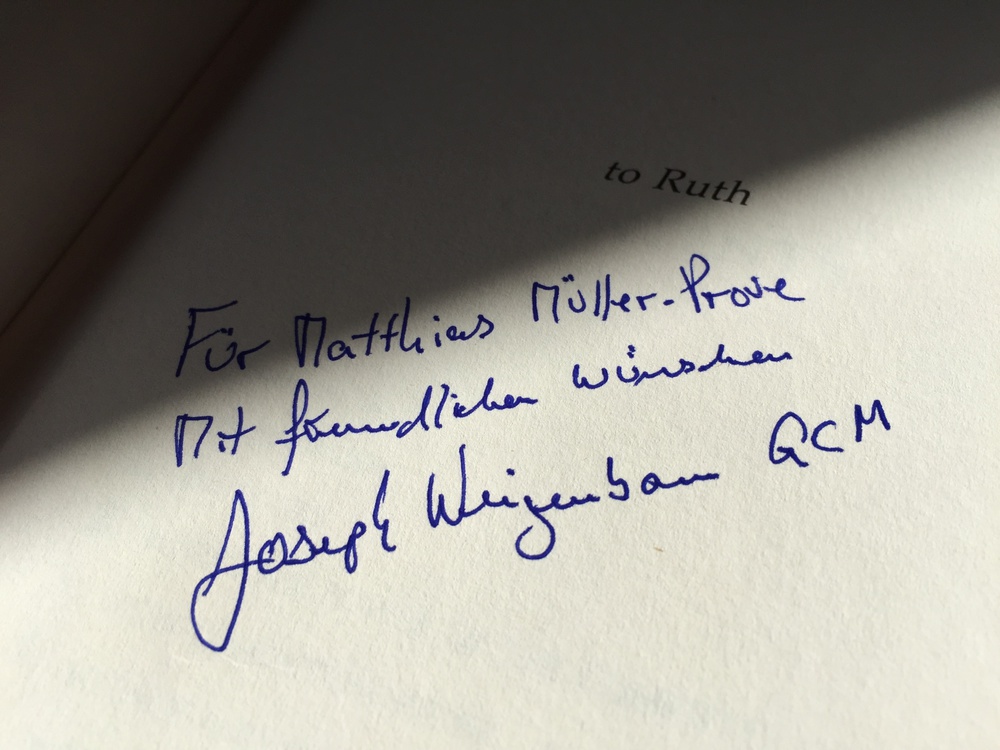 to Ruth
Für Matthias Müller-Prove
Mit freundlichen wünschen
Joseph Weizenbaum GCM